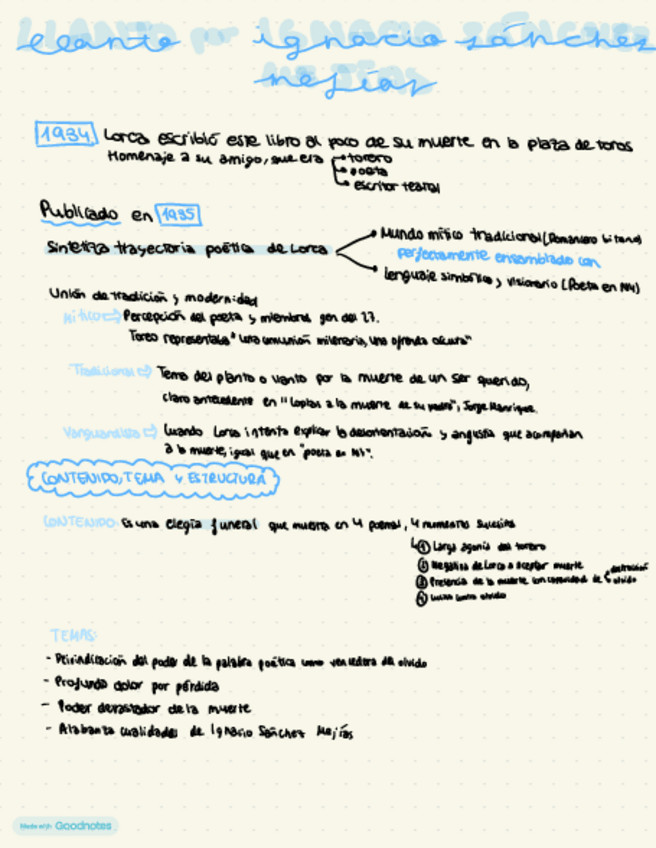 Llanto por ignacio sánchez
mejías
1934 Lorca escribió este libro al poco de su muerte en la plaza de toros
Homenaje a su amigo, que era torero
poeta
escritor teatral
Publicado en 1935
Sintetiza trayectoria poética de Lorca
Mundo mítico tradicional (Romancero Gitano)
perfectamente ensamblado con
lenguaje simbólico y visionario (Poeta en NY)
Unión de tradición y modernidad
Mítico ⇒ Percepción del poeta y miembros gen del 27.
Toreo representaba "una comunión milenaria, una ofrenda oscura"
Tradicional ⇒ Tema del planto o llanto por la muerte de un ser querido,
claro antecedente en "Coplas a la muerte de su padre", Jorge Manrique.
Vanguardista ⇒ Cuando Lorca intenta explicar la desorientación y angustia que acompañan
a la muerte, igual que en "poeta en NY".
CONTENIDO, TEMA Y ESTRUCTURA
CONTENIDO: Es una elegía funeral que muestra en 4 poemas, 4 momentos
① Larga agonía del torero
② Negativa de Lorca a aceptar muerte
③ Presencia de la muerte con capacidad de destrucción
olvido
④ Lucha contra olvido
TEMAS:
- Reivindicación del poder de la palabra poética como vencedora del olvido
- Profundo dolor por pérdida
- Poder devastador de la muerte
- Alabanza cualidades de Ignacio Sánchez Mejías
Made with Goodnotes